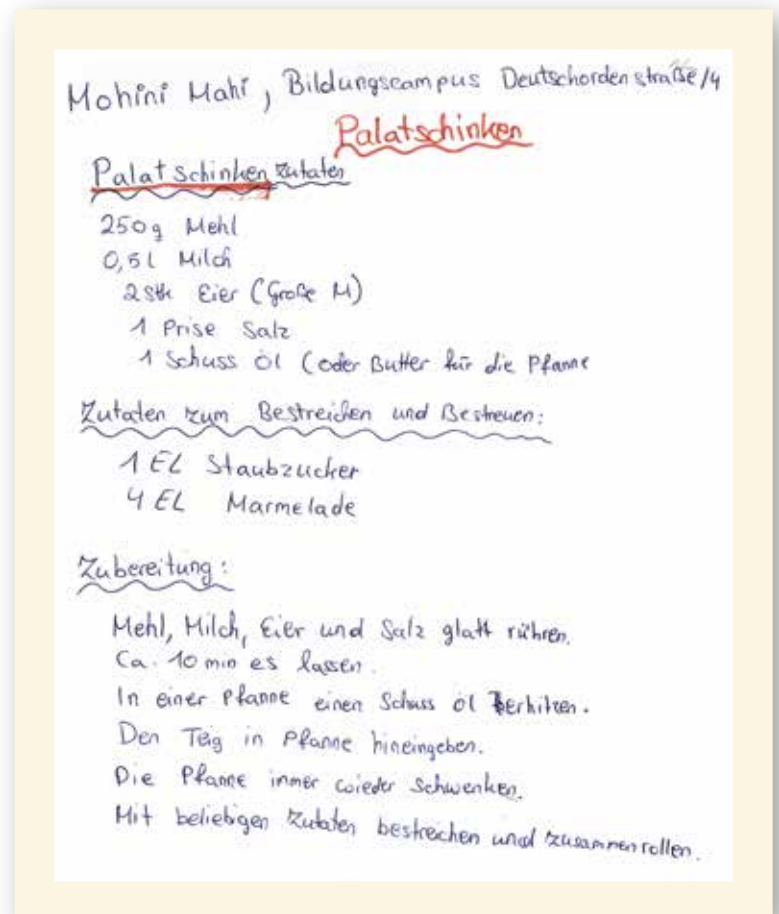 Mohini Mahi, Bildungscampus Deutschordenstraße/4
Palatschinken
Palatschinken Zutaten
250g Mehl
0,5l Milch
2 Stk Eier (Große M)
1 Prise Salz
1 Schuss Öl (oder Butter für die Pfanne
Zutaten zum Bestreichen und Bestreuen:
1 EL Staubzucker
4 EL Marmelade
Zubereitung:
Mehl, Milch, Eier und Salz glatt rühren.
Ca. 10 min es lassen.
In einer Pfanne einen Schuss öl erhitzen.
Den Teig in Pfanne hineingeben.
Die Pfanne immer wieder Schwenken.
Mit beliebigen Zutaten bestreichen und zusammenrollen.